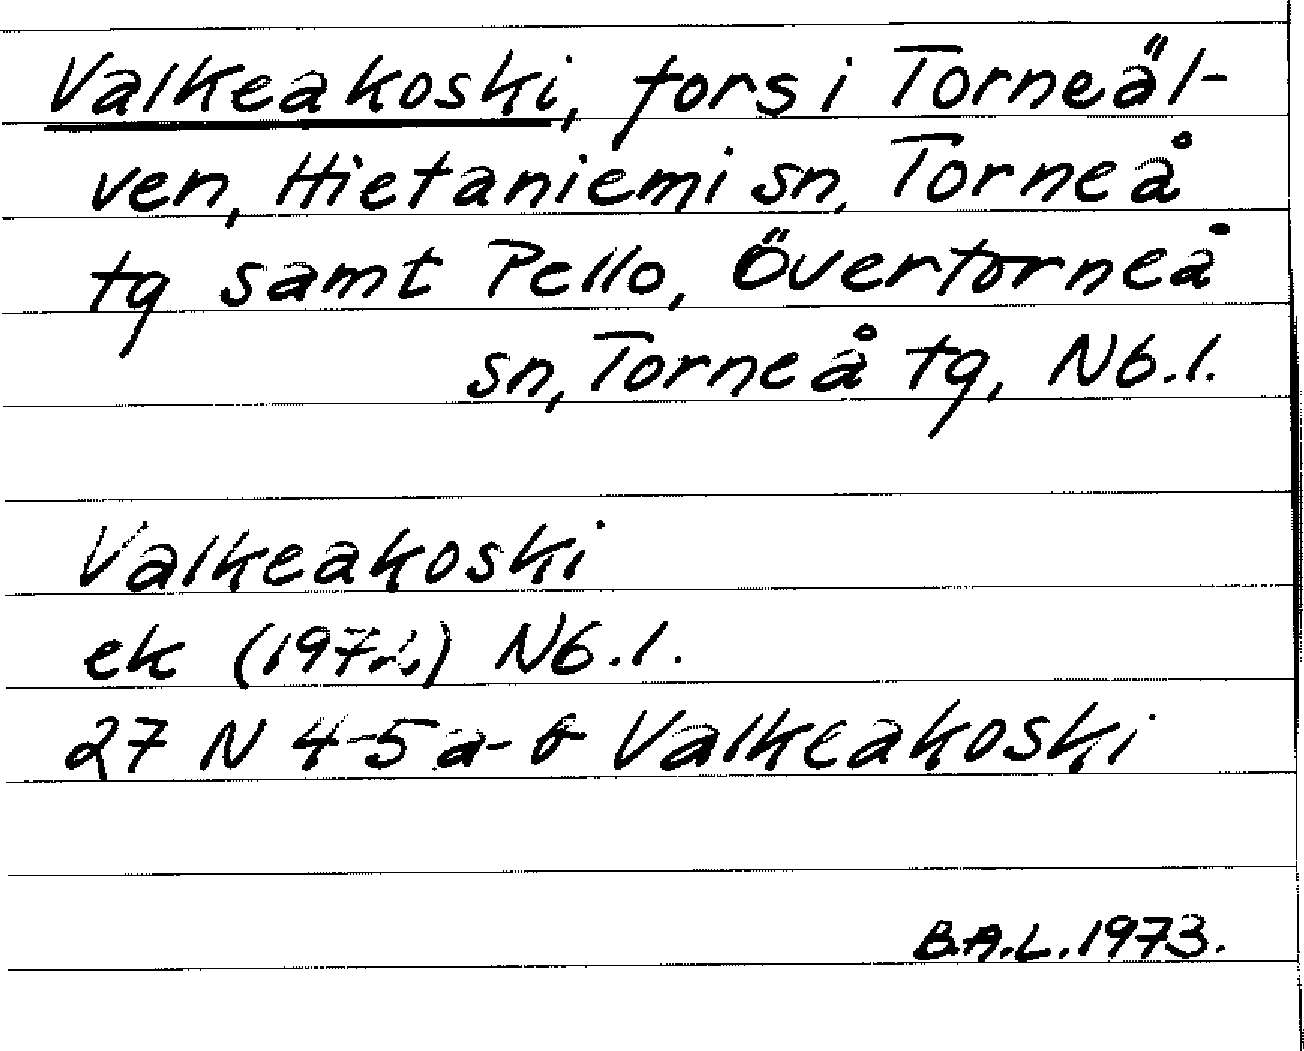 Valkeakoski, fors i Torneäl-
ven, Hietaniemi sn, Torneå
tg samt Pello, Övertorneå
sn, Torneå tg, Nb.l.
Valkeakoski
ek Nb.l.
27 N 4-5 a-b Valkeakoski
B.A.L. 1973.